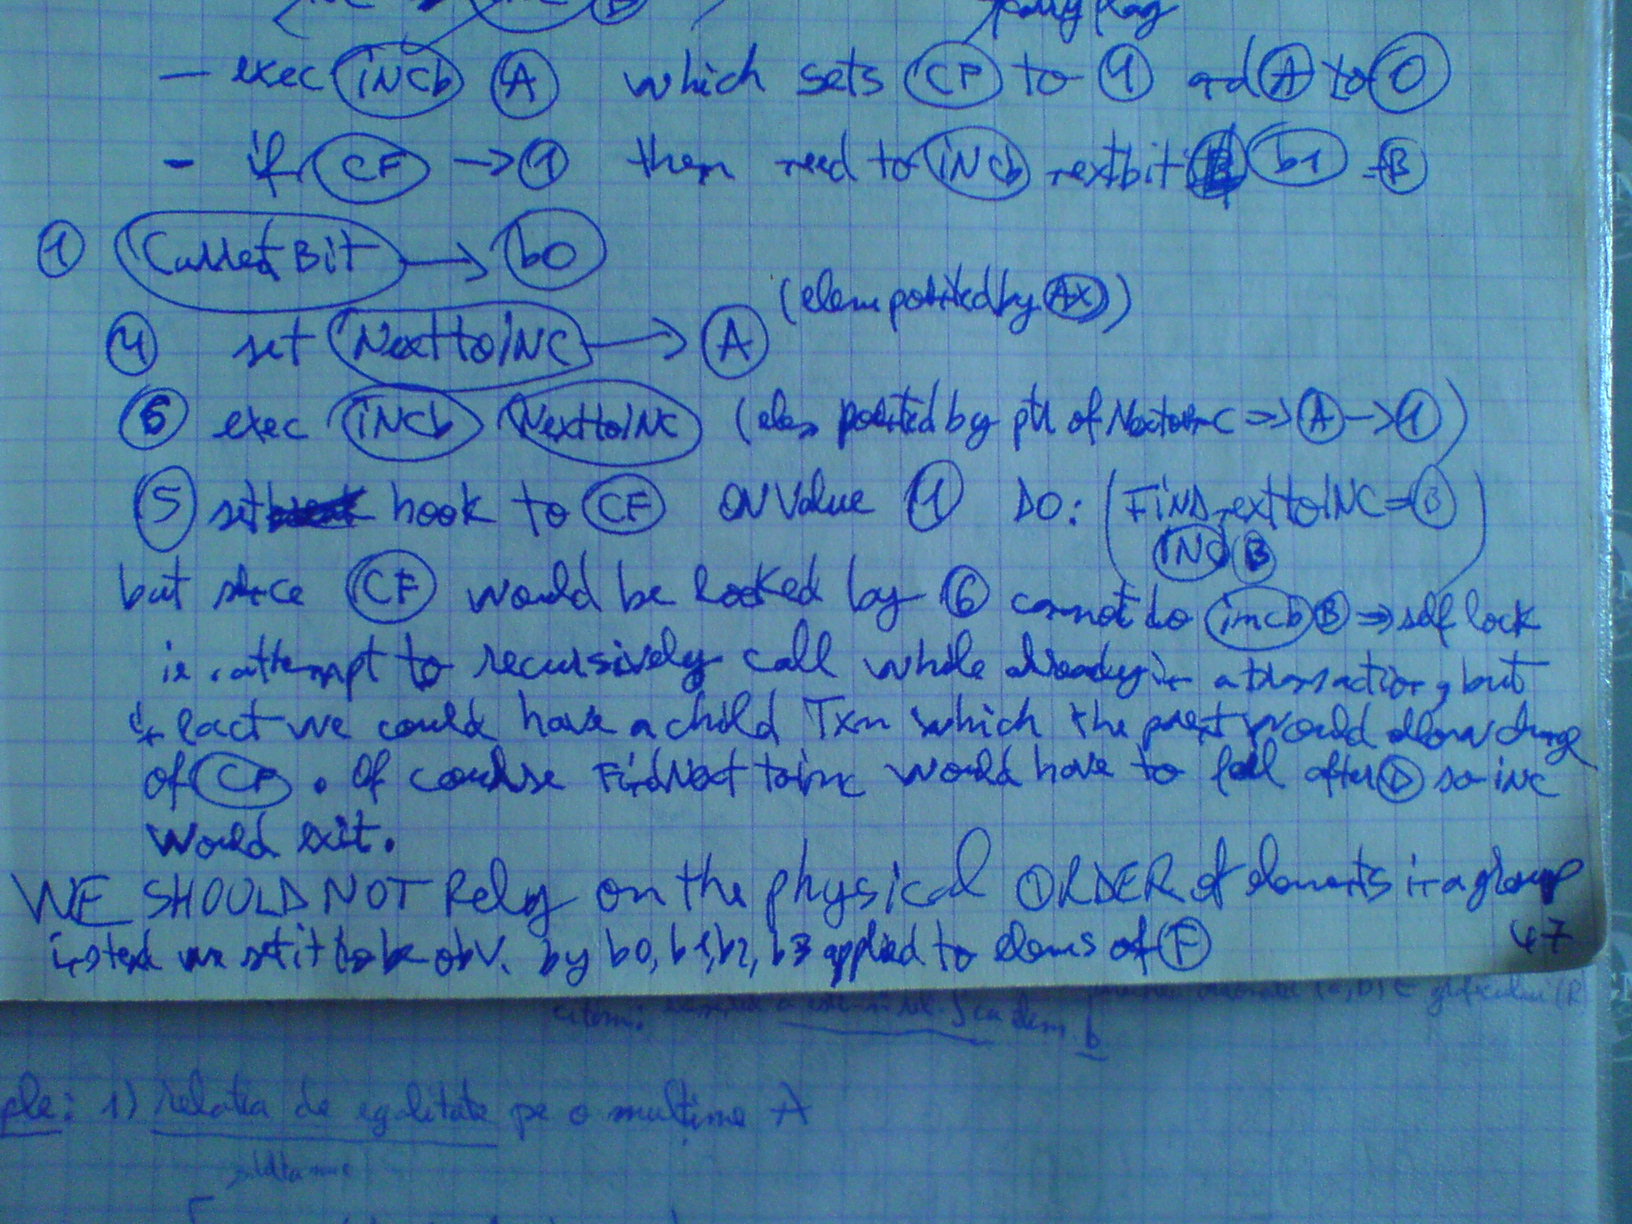 carry flag
— exec INCb A which sets CF to 1 and A to 0
- if CF → 1 then need to INCb nextbit b1 = B
1 Current Bit → b0
(elem pointed by AX)
4 set NexttoINC → A
6 exec INCb NexttoINC (elem pointed by ptr of NexttoINC => A → 1)
5 set hook to CF ON Value 1 DO: (FIND nexttoINC = B
INC B)
but since CF would be locked by 6 cannot do incb B => self lock
ie. attempt to recursively call while already in a transaction, but
in fact we could have a child Txn which the parent would allow change
of CF. Of course FindNexttoinc would have to fail after D so INC
would exit.
WE SHOULD NOT Rely on the physical ORDER of elements in a group
instead we set it to be obv. by b0, b1, b2, b3 applied to elems of F
47
ple: 1) relatia de egalitate pe o mulțime A